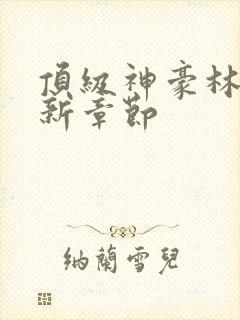 頂級神豪林
新章節
納蘭雪兒